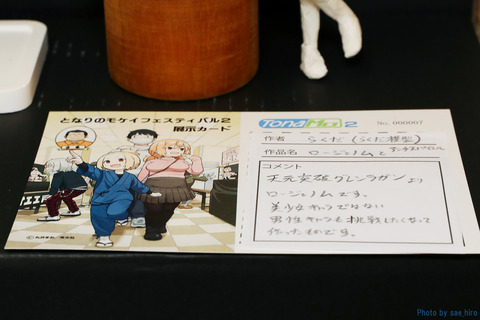 となりのモケイフェスティバル2
展示カード
TonaMo 2
No. 000007
作者 らくだ(らくだ模型)
作品名 ロージェノムと
コメント
天元突破グレンラガンより
ロージェノムです。
美少女キャラではない
男性キャラも挑戦したくなって
作ったものです。
Photo by sae_hiro